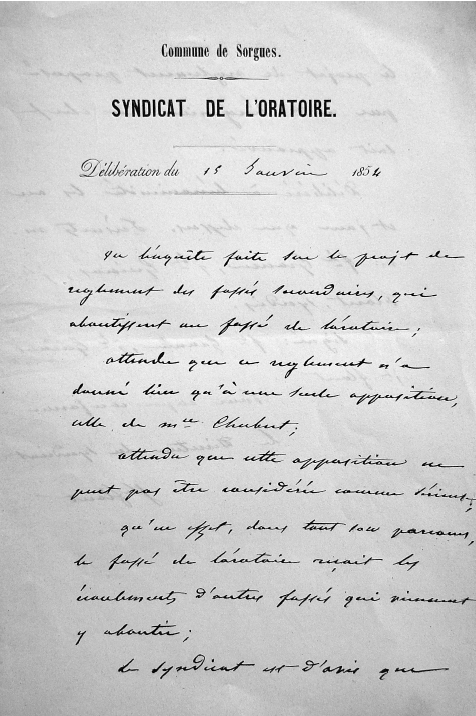 Commune de Sorgues.
SYNDICAT DE L'ORATOIRE.
Délibération du 15 Janvier 1854
Vu l'enquête faite sur le projet de
reglement des fossés secondaires, qui
aboutissent au fossé de l'oratoire;
attendu que ce reglement n'a
donné lieu qu'à une seule opposition,
celle de Mr Chabert;
attendu que cette opposition ne
peut pas être considérée comme sérieuse;
qu'en effet, dans tout son parcours,
le fossé de l'oratoire reçoit les
écoulements d'autres fossés qui viennent
y aboutir;
Le syndicat est d'avis que